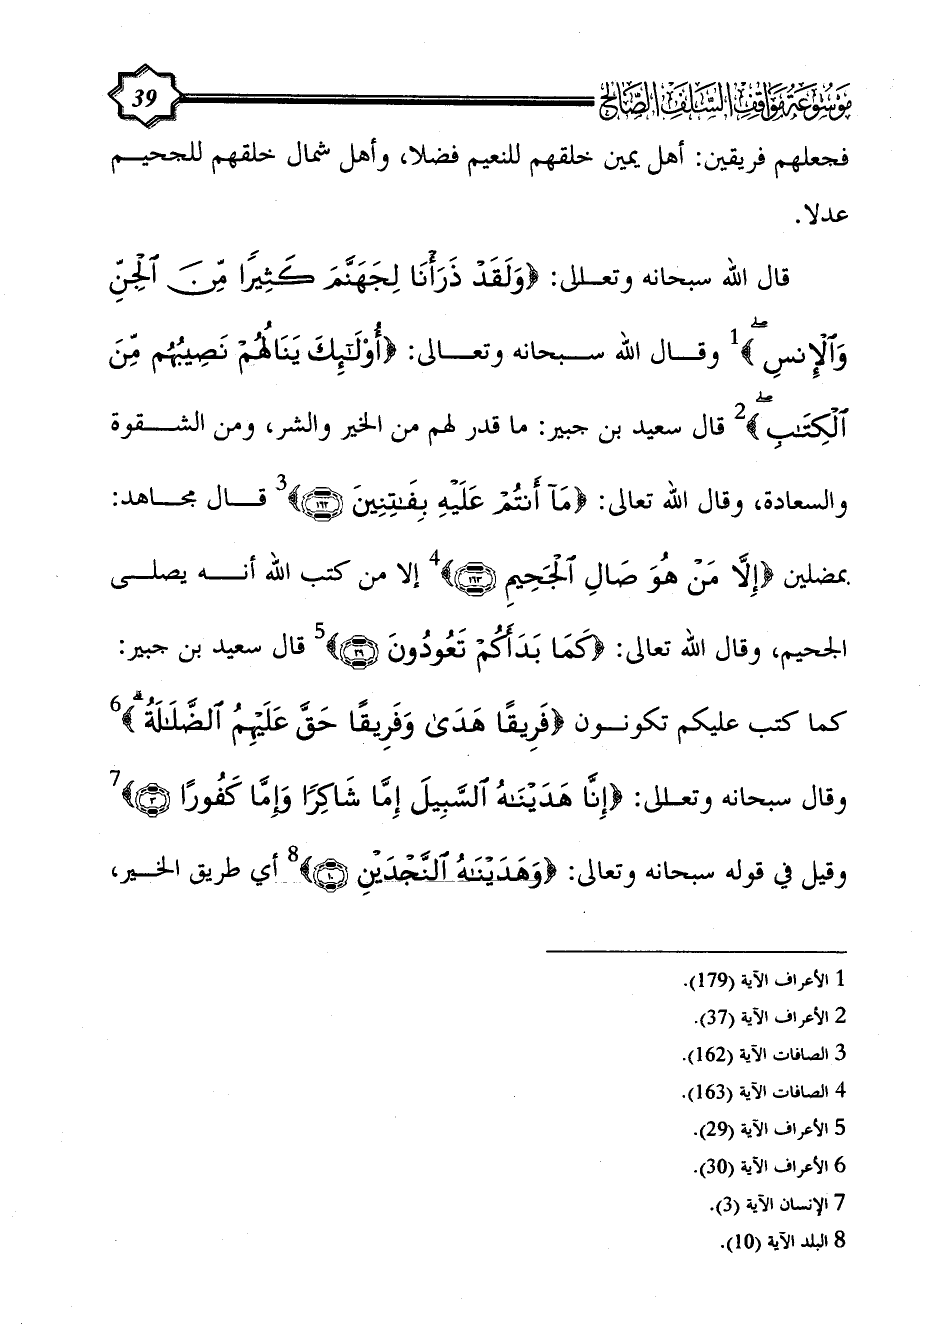 موسوعة مواقف السلف الصالح
39
فجعلهم فريقين: أهل يمين خلقهم للنعيم فضلا، وأهل شمال خلقهم للجحيم
عدلا.
قال الله سبحانه وتعالى: ﴿وَلَقَدْ ذَرَأْنَا لِجَهَنَّمَ كَثِيرًا مِّنَ ٱلْجِنِّ
وَٱلْإِنسِ ۖ﴾1 وقال الله سبحانه وتعالى: ﴿أُوْلَٰٓئِكَ يَنَالُهُمْ نَصِيبُهُم مِّنَ
ٱلْكِتَٰبِ ۖ﴾2 قال سعيد بن جبير: ما قدر لهم من الخير والشر، ومن الشقوة
والسعادة، وقال الله تعالى: ﴿مَآ أَنتُمْ عَلَيْهِ بِفَٰتِنِينَ ١٦٢﴾3 قال مجاهد:
بمضلين ﴿إِلَّا مَنْ هُوَ صَالِ ٱلْجَحِيمِ ١٦٣﴾4 إلا من كتب الله أنه يصلى
الجحيم، وقال الله تعالى: ﴿كَمَا بَدَأَكُمْ تَعُودُونَ ٢٩﴾5 قال سعيد بن جبير:
كما كتب عليكم تكونون ﴿فَرِيقًا هَدَىٰ وَفَرِيقًا حَقَّ عَلَيْهِمُ ٱلضَّلَٰلَةُ ۗ﴾6
وقال سبحانه وتعالى: ﴿إِنَّا هَدَيْنَٰهُ ٱلسَّبِيلَ إِمَّا شَاكِرًا وَإِمَّا كَفُورًا ٣﴾7
وقيل في قوله سبحانه وتعالى: ﴿وَهَدَيْنَٰهُ ٱلنَّجْدَيْنِ ١٠﴾8 أي طريق الخير،
1 الأعراف الآية (179).
2 الأعراف الآية (37).
3 الصافات الآية (162).
4 الصافات الآية (163).
5 الأعراف الآية (29).
6 الأعراف الآية (30).
7 الإنسان الآية (3).
8 البلد الآية (10).